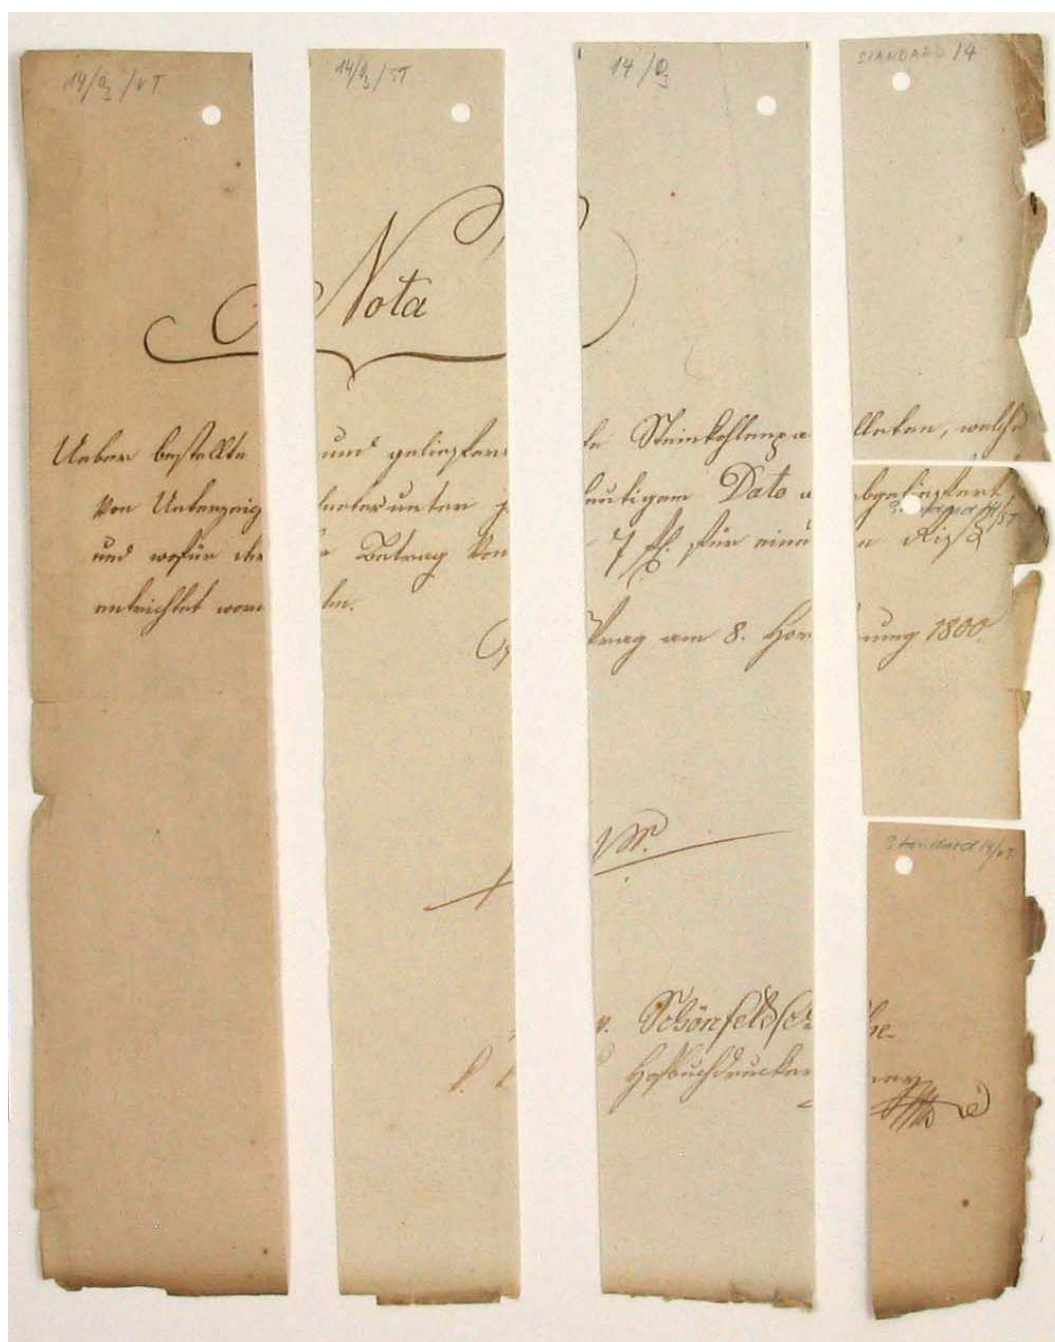 14/O₃/VT 14/O₃/ST 14/O₃ STANDARD 14
Nota
Ueber bestellte und geliefer te Steinkohlenpa lleten, welche
von Unterzeig neter unter heutigem Dato abgeliefert
Standard 14/ST
und wofür der Betrag von 7 fl. für eine n Rieß
entrichtet word en.
Prag am 8. Hor nung 1800.
Standard 14/VT
v. Schönfeldsche
k. k. Hofbuchdrucker ey